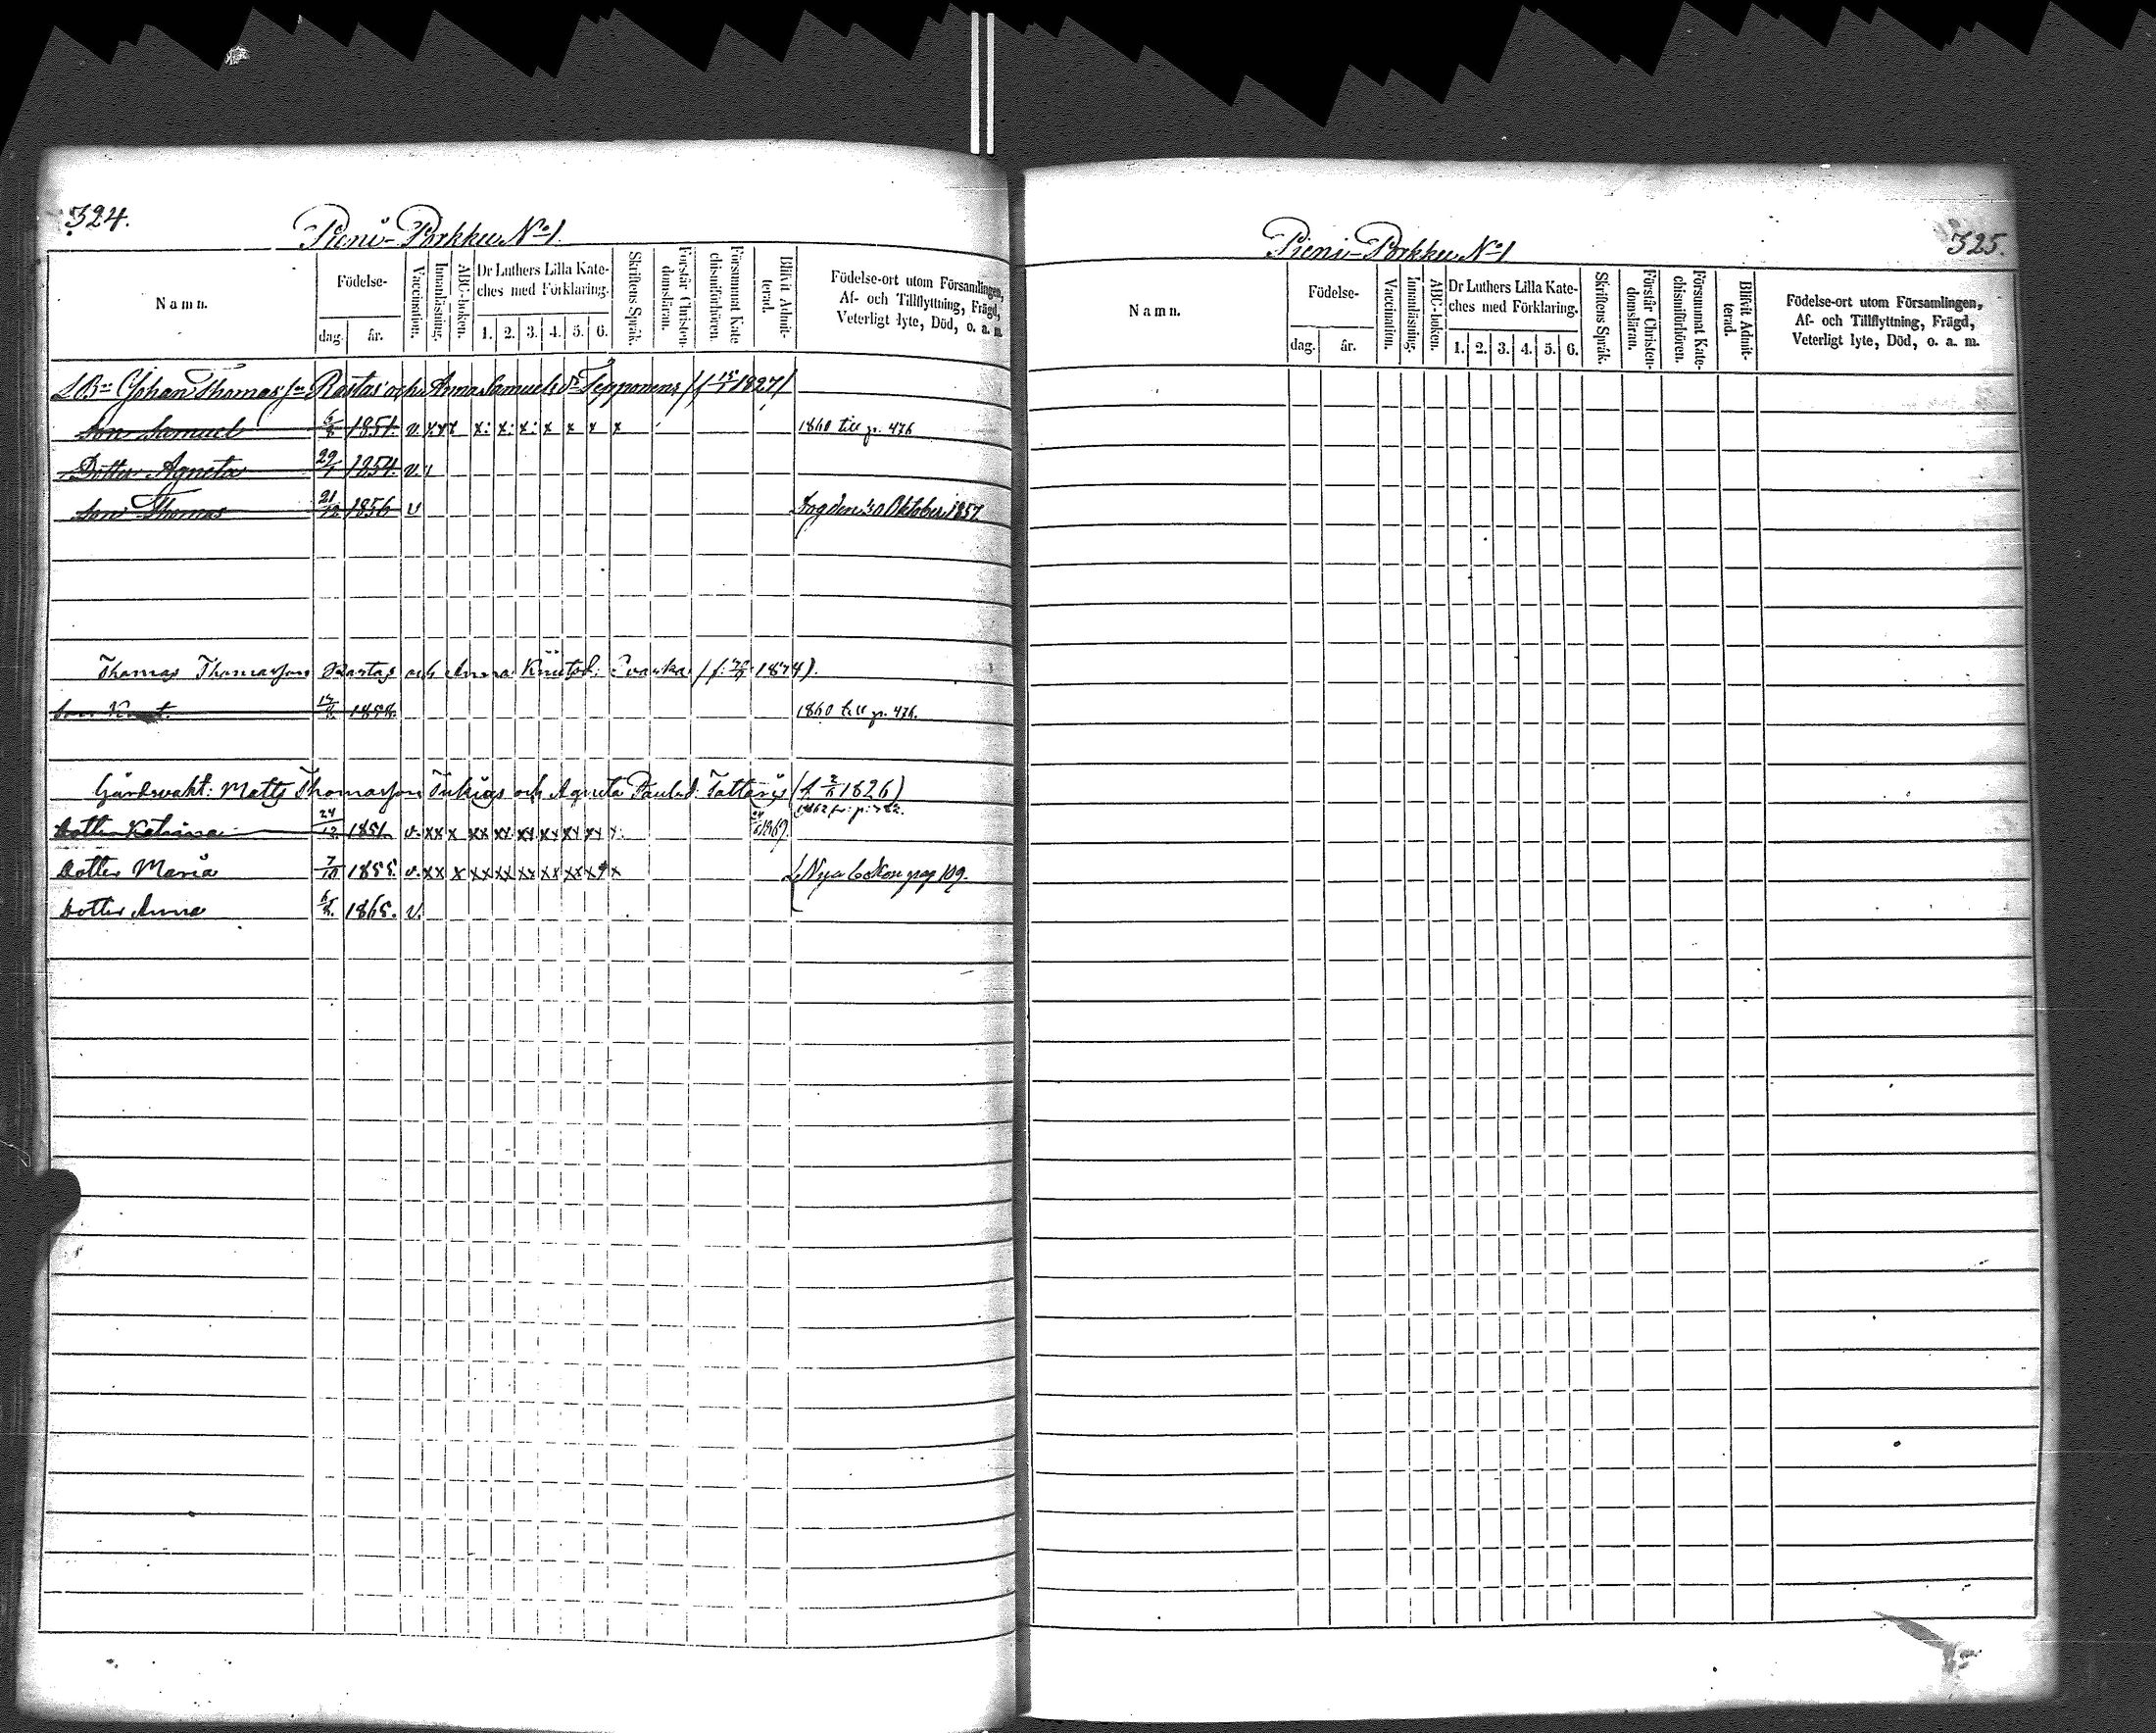 324.
Pieni-Porkku No 1.
Namn.
Födelse-
dag.
år.
Vaccination.
Innanläsning.
ABC-boken.
Dr Luthers Lilla Kate-
ches med Förklaring.
1. 2. 3. 4. 5. 6.
Skriftens Språk.
Förstår Christen-
domsläran.
Försummat Kate
chismiförhören.
Blifvit Admit-
terad.
Födelse-ort utom Församlingen,
Af- och Tillflyttning, Frägd,
Veterligt lyte, Död, o. a. m.
Johan Thomas sn Rastas och Anna Samuels dr Sepponens (f 15/1 1827)
Son Samuel 1851. v. x x x x: x: x: x x x x 1860 till p. 476
Dotter Agneta 29/1 1854. v.
Son Thomas 21/12 1856 v Dog den 30 Oktober 1857.
Thomas Thomasson Rastas och Anna Knutsd:
Son Knut. 1858. 1860 till p. 476.
Gårdsvakt: Matts Thomasson Tukias och Agneta Paulsd: (f 1826)
Dotter Katarina 24/12 1851. v. xx x xx xx xx xx xx xx x. 1869.
Dotter Maria 7/10 1855. v. xx x xx xx xx xx xx x x Nya boken pag 109.
Dotter Anna 1865. v.
Pieni-Porkku No 1
325.
Namn.
Födelse-
dag.
år.
Vaccination.
Innanläsning.
ABC-boken.
Dr Luthers Lilla Kate-
ches med Förklaring.
1. 2. 3. 4. 5. 6.
Skriftens Språk.
Förstår Christen-
domsläran.
Försummat Kate-
chismiförhören.
Blifvit Admit-
terad.
Födelse-ort utom Församlingen,
Af- och Tillflyttning, Frägd,
Veterligt lyte, Död, o. a. m.